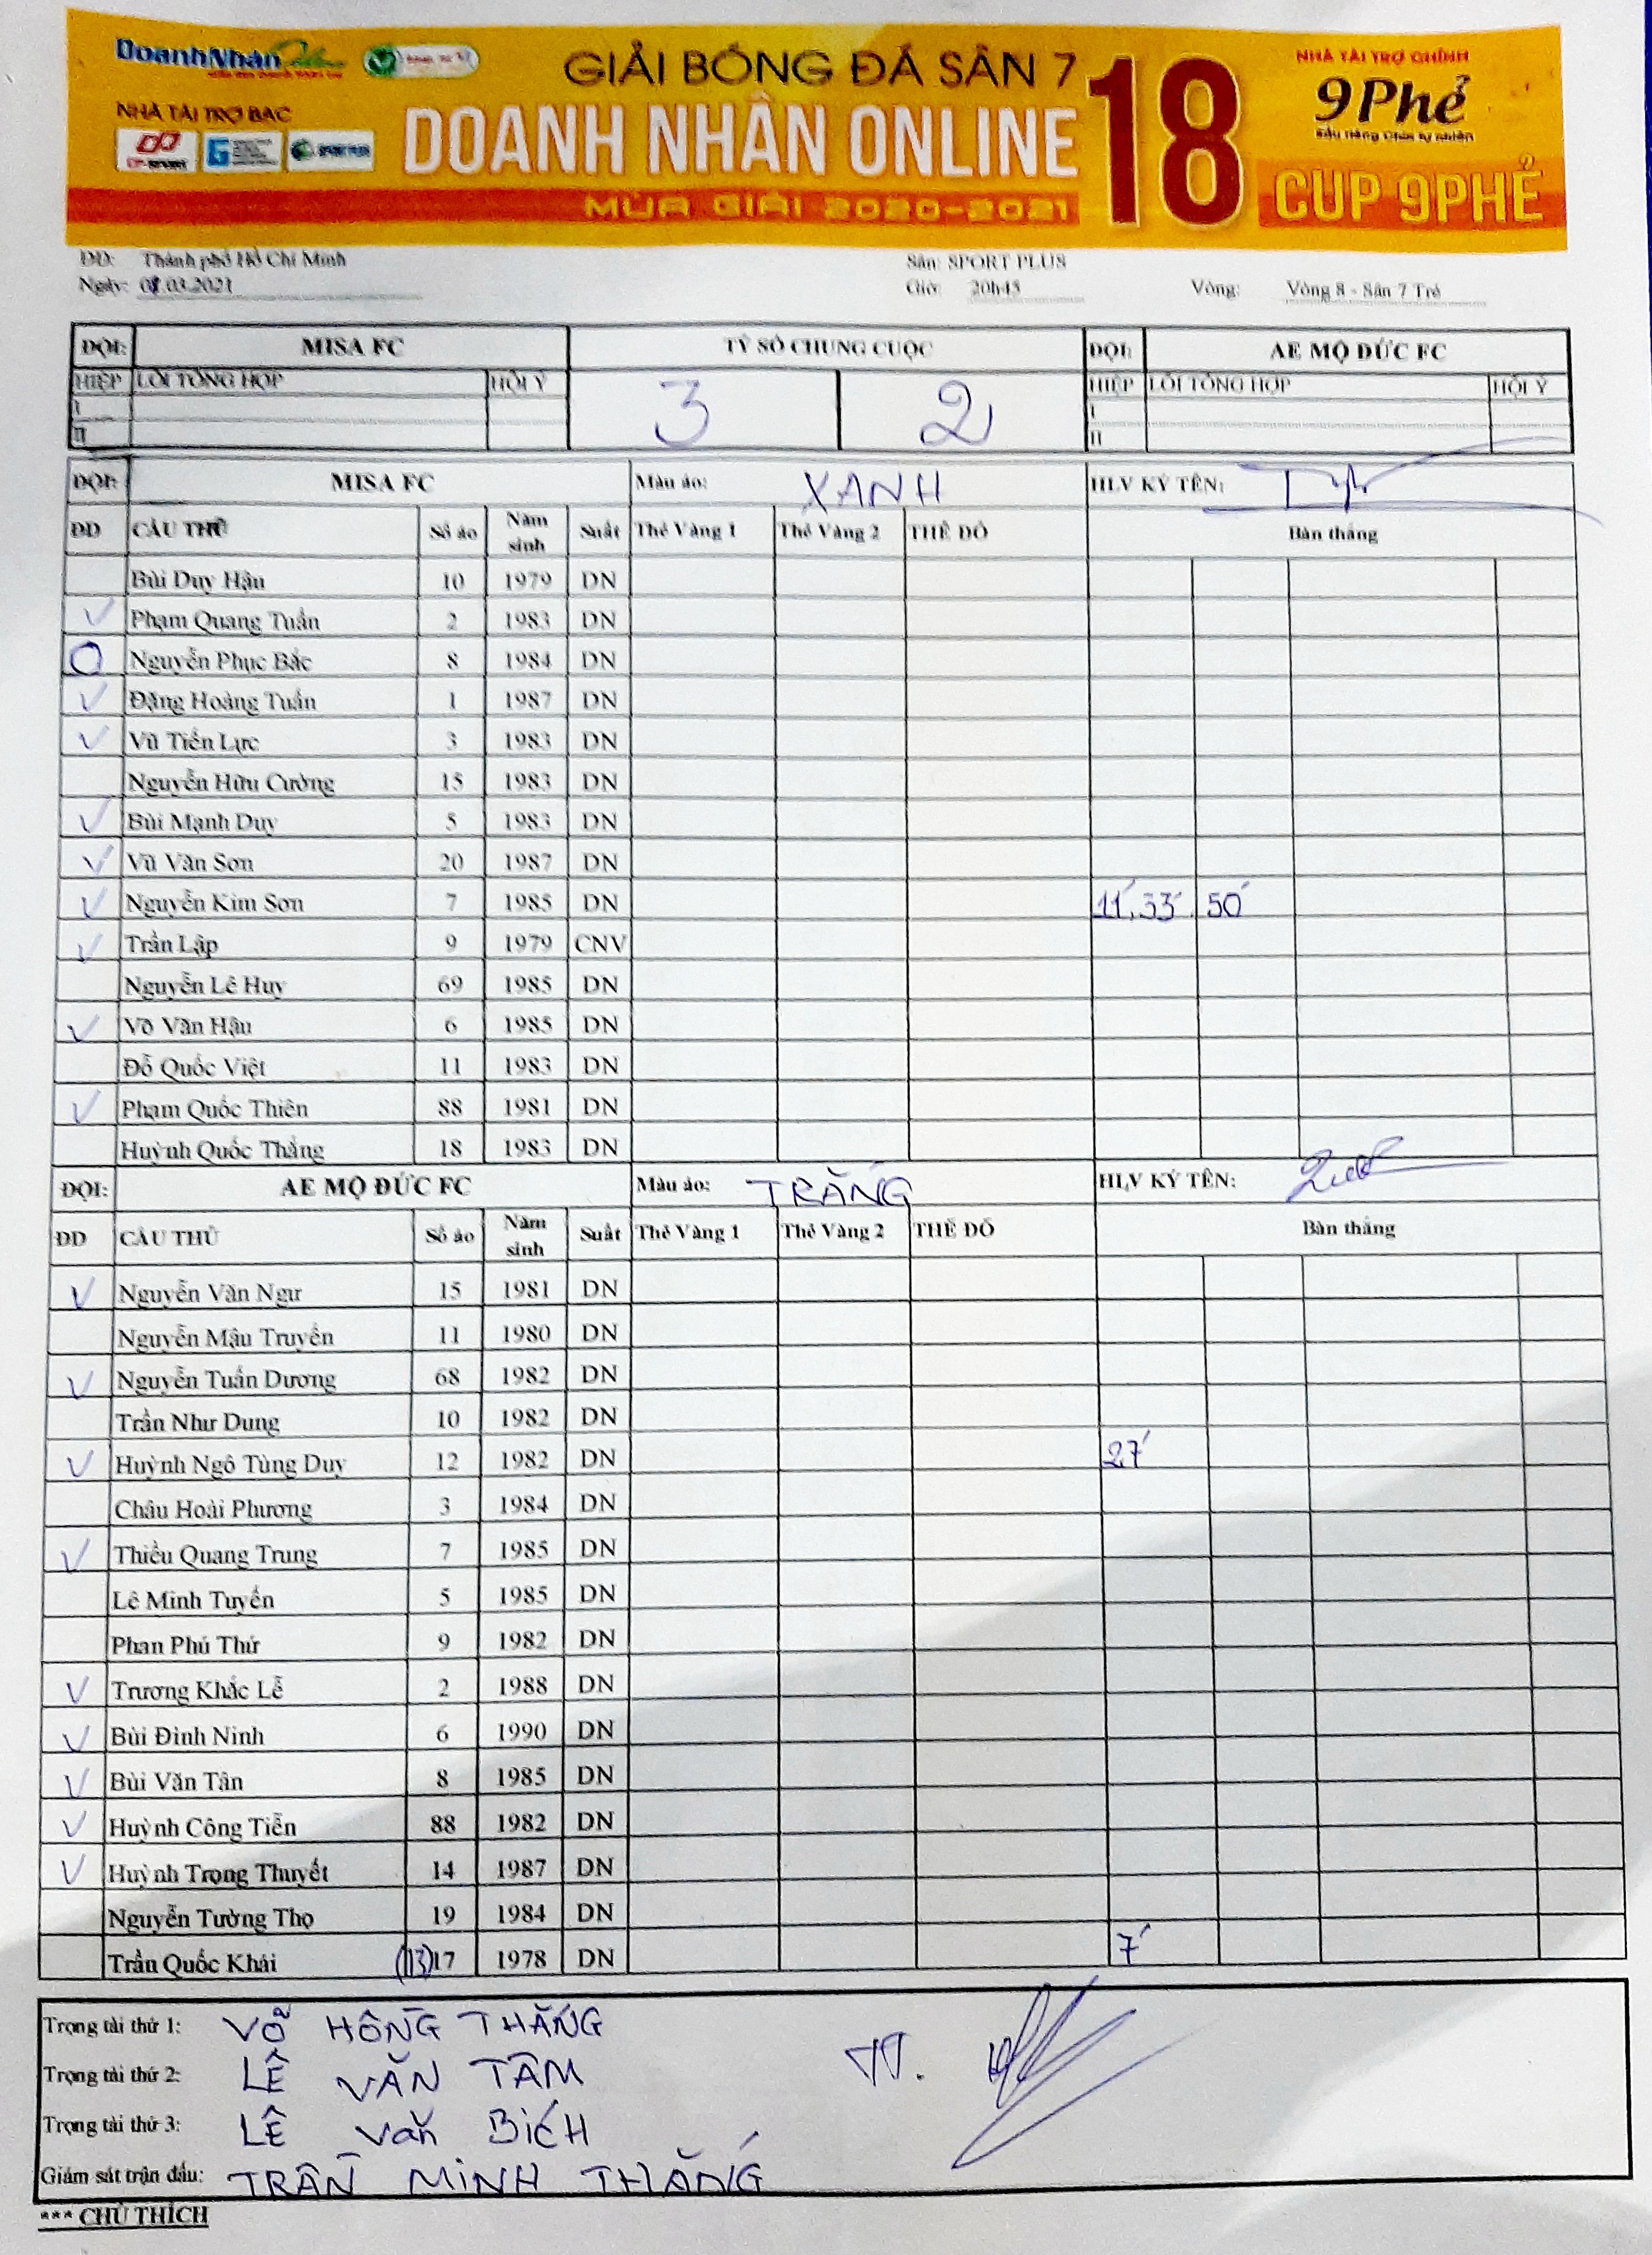 DoanhNhân Online
GIẢI BÓNG ĐÁ SÂN 7
DOANH NHÂN ONLINE
18
MÙA GIẢI 2020-2021
NHÀ TÀI TRỢ BẠC
NHÀ TÀI TRỢ CHÍNH
9Phẻ
CUP 9PHẺ
ĐĐ: Thành phố Hồ Chí Minh
Sân: SPORT PLUS
Ngày: 08.03.2021
Giờ: 20h45
Vòng: Vòng 8 - Sân 7 Trẻ
ĐỘI: MISA FC TỶ SỐ CHUNG CUỘC ĐỘI: AE MỘ ĐỨC FC
HIỆP LỖI TỔNG HỢP HỘI Ý 3 2 HIỆP LỖI TỔNG HỢP HỘI Ý
I I
II II
ĐỘI: MISA FC Màu áo: XANH HLV KÝ TÊN:
ĐD CẦU THỦ Số áo Năm sinh Suất Thẻ Vàng 1 Thẻ Vàng 2 THẺ ĐỎ Bàn thắng
Bùi Duy Hậu 10 1979 DN
✓ Phạm Quang Tuấn 2 1983 DN
O Nguyễn Phục Bắc 8 1984 DN
✓ Đặng Hoàng Tuấn 1 1987 DN
✓ Vũ Tiến Lực 3 1983 DN
Nguyễn Hữu Cường 15 1983 DN
✓ Bùi Mạnh Duy 5 1983 DN
✓ Vũ Văn Sơn 20 1987 DN
✓ Nguyễn Kim Sơn 7 1985 DN 11', 33' 50'
✓ Trần Lập 9 1979 CNV
Nguyễn Lê Huy 69 1985 DN
✓ Võ Văn Hậu 6 1985 DN
Đỗ Quốc Việt 11 1983 DN
✓ Phạm Quốc Thiên 88 1981 DN
Huỳnh Quốc Thắng 18 1983 DN
ĐỘI: AE MỘ ĐỨC FC Màu áo: TRẮNG HLV KÝ TÊN:
ĐD CẦU THỦ Số áo Năm sinh Suất Thẻ Vàng 1 Thẻ Vàng 2 THẺ ĐỎ Bàn thắng
✓ Nguyễn Văn Ngư 15 1981 DN
Nguyễn Mậu Truyền 11 1980 DN
✓ Nguyễn Tuấn Dương 68 1982 DN
Trần Như Dung 10 1982 DN
✓ Huỳnh Ngô Tùng Duy 12 1982 DN 27'
Châu Hoài Phương 3 1984 DN
✓ Thiều Quang Trung 7 1985 DN
Lê Minh Tuyến 5 1985 DN
Phan Phú Thứ 9 1982 DN
✓ Trương Khắc Lễ 2 1988 DN
✓ Bùi Đình Ninh 6 1990 DN
✓ Bùi Văn Tân 8 1985 DN
✓ Huỳnh Công Tiễn 88 1982 DN
✓ Huỳnh Trọng Thuyết 14 1987 DN
Nguyễn Tường Thọ 19 1984 DN
Trần Quốc Khải (13) 17 1978 DN 7'
Trọng tài thứ 1: VÕ HỒNG THẮNG
Trọng tài thứ 2: LÊ VĂN TÂM
Trọng tài thứ 3: LÊ Văn BíCH
Giám sát trận đấu: TRẦN MINH THẮNG
*** CHÚ THÍCH